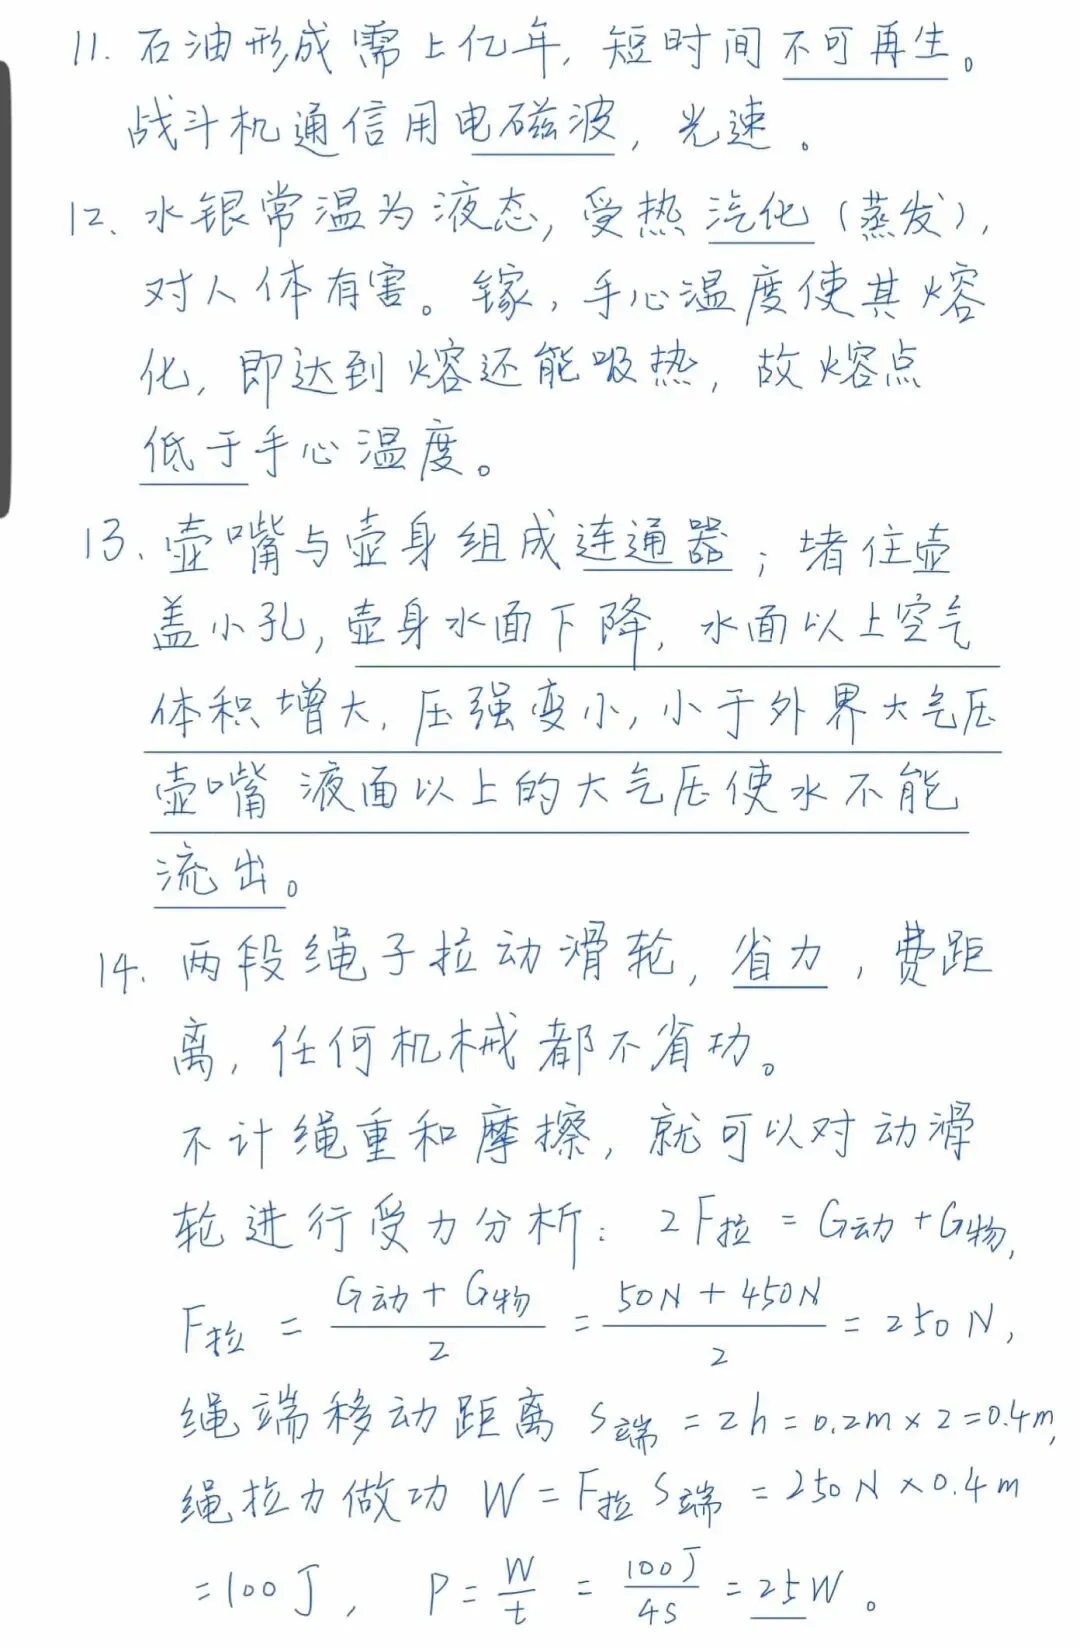 11. 石油形成需上亿年, 短时间不可再生。
战斗机通信用电磁波, 光速。
12、水银常温为液态, 受热汽化(蒸发),
对人体有害。镓, 手心温度使其熔
化, 即达到熔还能吸热, 故熔点
低于手心温度。
13、壶嘴与壶身组成连通器; 堵住壶
盖小孔, 壶身水面下降, 水面以上空气
体积增大, 压强变小, 小于外界大气压
壶嘴液面以上的大气压使水不能
流出。
14. 两段绳子拉动滑轮, 省力, 费距
离, 任何机械都不省功。
不计绳重和摩擦, 就可以对动滑
轮进行受力分析: 2F拉 = G动 + G物,
F拉 = (G动 + G物)/2 = (50N + 450N)/2 = 250N,
绳端移动距离 S端 = 2h = 0.2m × 2 = 0.4m,
绳拉力做功 W = F拉 S端 = 250N × 0.4m
= 100J, P = W/t = 100J/4S = 25W。